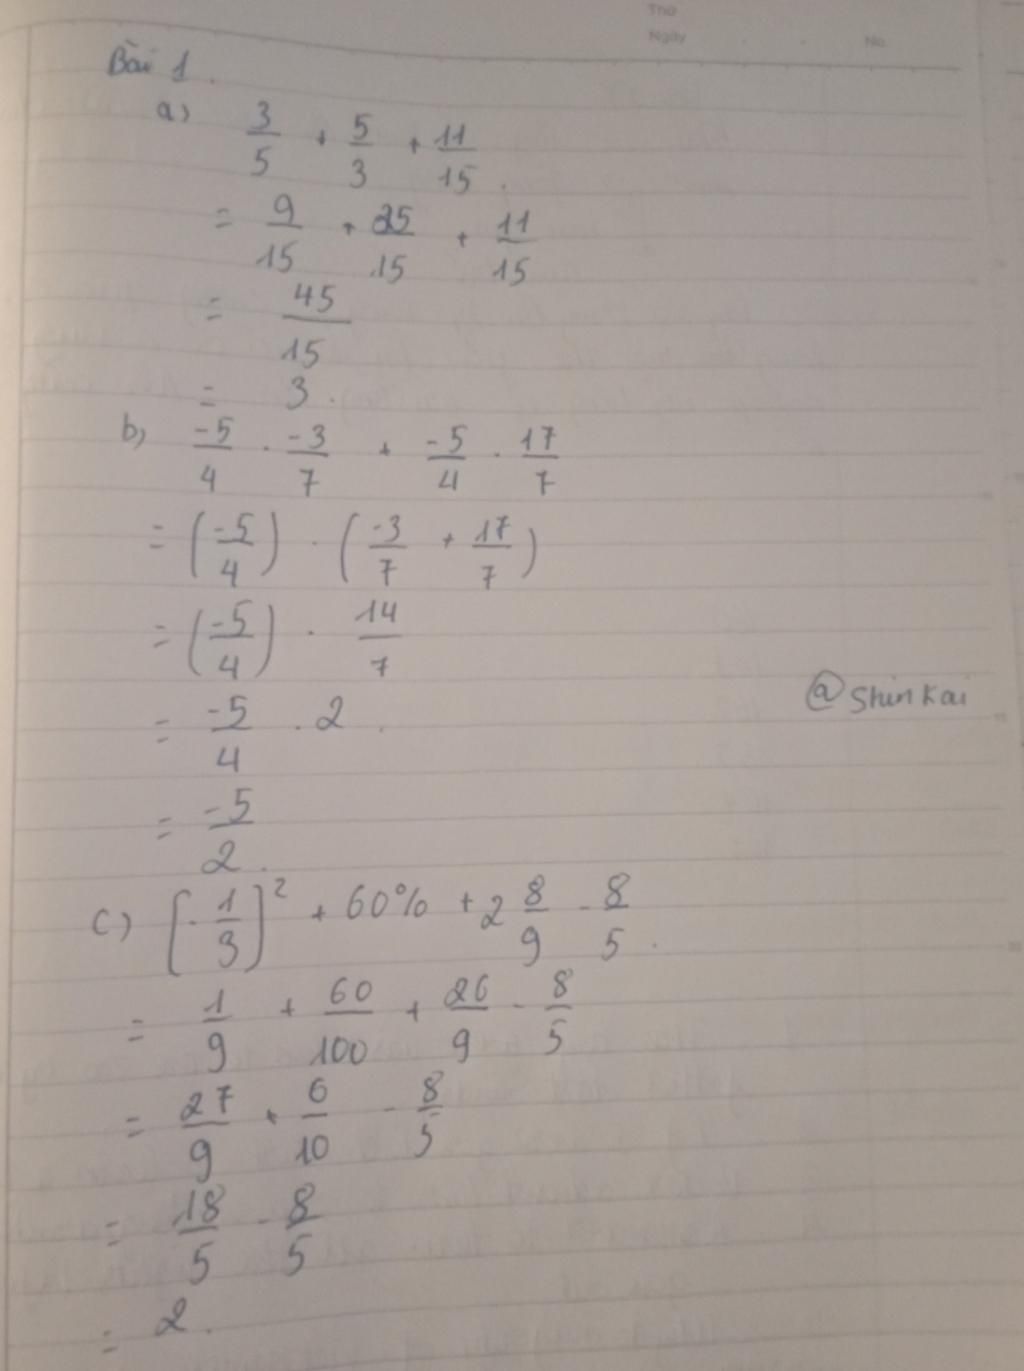 Thứ
Ngày . . No.
Bài 1.
a) 3/5 + 5/3 + 11/15.
= 9/15 + 25/15 + 11/15
= 45/15
= 3.
b) -5/4 . -3/7 + -5/4 . 17/7
= (-5/4) . (-3/7 + 17/7)
= (-5/4) . 14/7
= -5/4 . 2.
@ShinKai
= -5/2.
c) [-1/3]² + 60% + 2 8/9 - 8/5.
= 1/9 + 60/100 + 26/9 - 8/5
= 27/9 + 6/10 - 8/5
= 18/5 - 8/5
= 2.